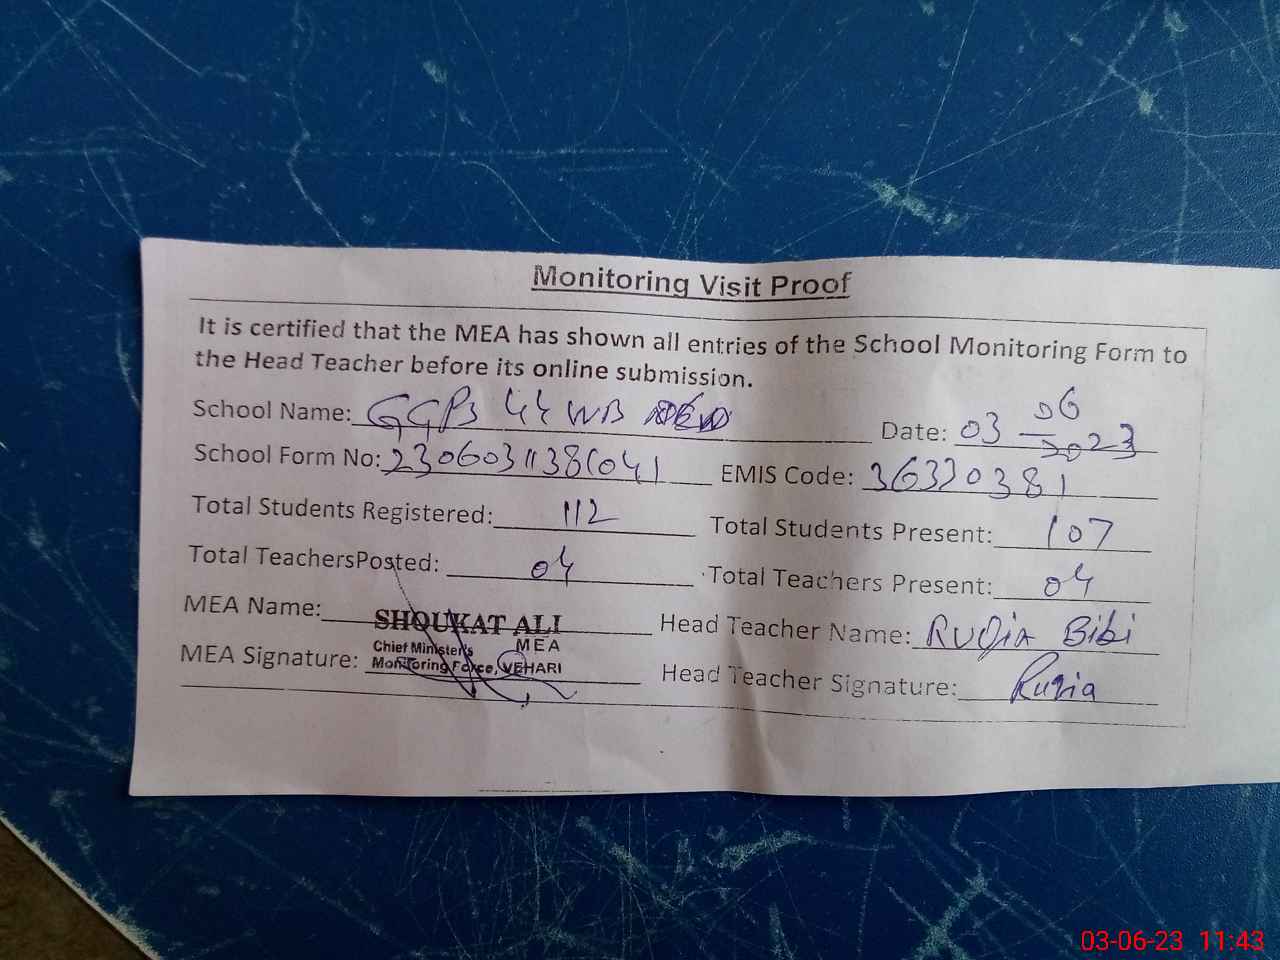 Monitoring Visit Proof
It is certified that the MEA has shown all entries of the School Monitoring Form to
the Head Teacher before its online submission.
School Name: GGPS 44 WB Date: 03 06 2023
School Form No: 2306031138 041 EMIS Code: 36320381
Total Students Registered: 112 Total Students Present: 107
Total TeachersPosted: 04 Total Teachers Present: 04
MEA Name: SHOUKAT ALI Head Teacher Name: Bibi
Chief Minister's MEA
MEA Signature: Monitoring Force, VEHARI Head Teacher Signature: Ruqia
03-06-23 11:43